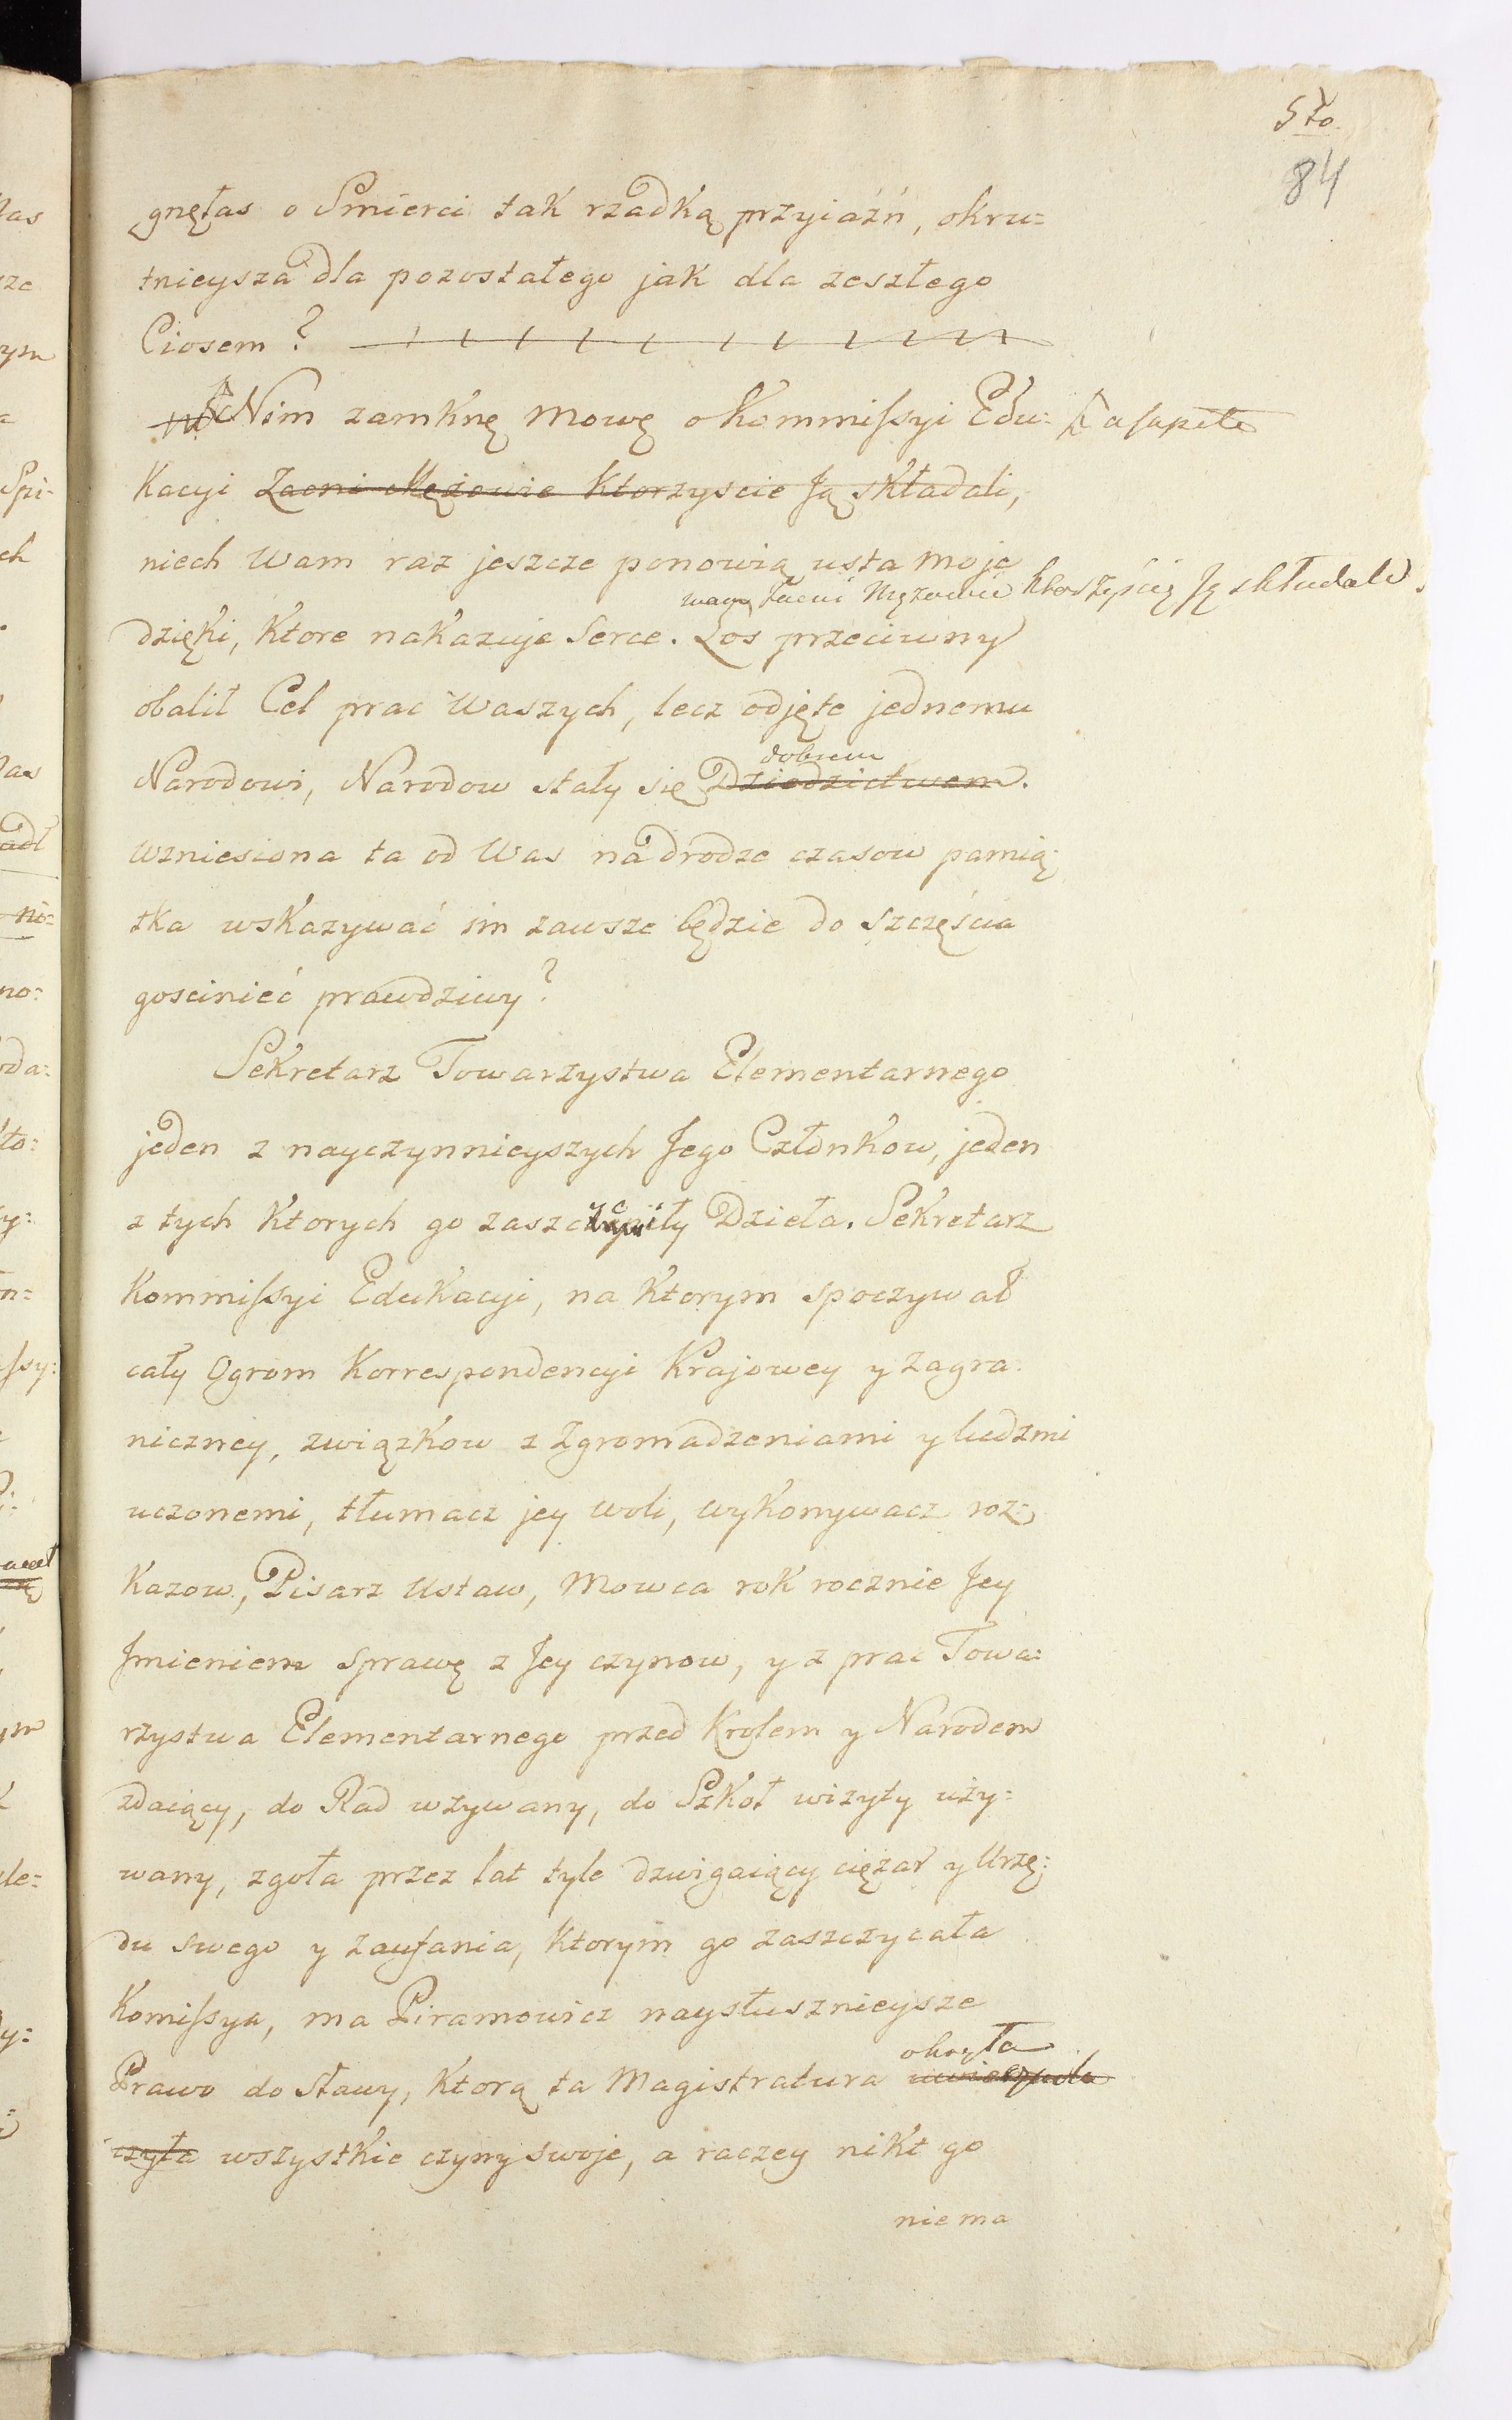 5to
84
gnęłas o Smierci tak rzadką przyiaźń, okru=
tnieysza dla pozostałego jak dla zeszłego
Ciosem?
Nim zamknę mowę o Kommissyi Edu=
a capite
kacyi Zacni Mężowie Ktorzyscie Ją składali,
niech Wam raz jeszcze ponowią usta moje
Zacni Mężowie ktorzyscie Ję składali.
dzięki, Ktore nakazuje Serce. Los przeciwny
obalił Cel prac Waszych, lecz odjęte jednemu
dobrem
Narodowi, Narodow stały się Dziedzictwem.
wzniesiona ta od Was na drodze czasow pamią=
tka wskazywać im zawsze będzie do szczęścia
gosciniec prawdziwy?
Sekretarz Towarzystwa Elementarnego
jeden z nayczynnieyszych Jego Członkow, jeden
z tych Ktorych go zaszczyciły Dzieła. Sekretarz
Kommissyi Edukacyi, na Ktorym spoczywał
cały Ogrom Korrespondencyi Krajowey y zagra=
niczney, związkow z Zgromadzeniami y ludzmi
uczonemi, tłumacz jey woli, wykonywacz roz=
kazow, Pisarz Ustaw, Mowca rok rocznie Jey
Jmieniem sprawę z Jey czynow, y z prac Towa=
rzystwa Elementarnego przed Krolem y Narodem
zdaiący, do Rad wzywany, do Szkoł wizyty uży=
wany, zgoła przez lat tyle dzwigaiący ciężar y Urzę=
du swego y zaufania, Ktorym go zaszczycała
Komissya, ma Piramowicz naysłusznieysze
okryła
Prawo do sławy, Ktorą ta Magistratura
czyła wszystkie czyny swoje, a raczey nikt go
nie ma